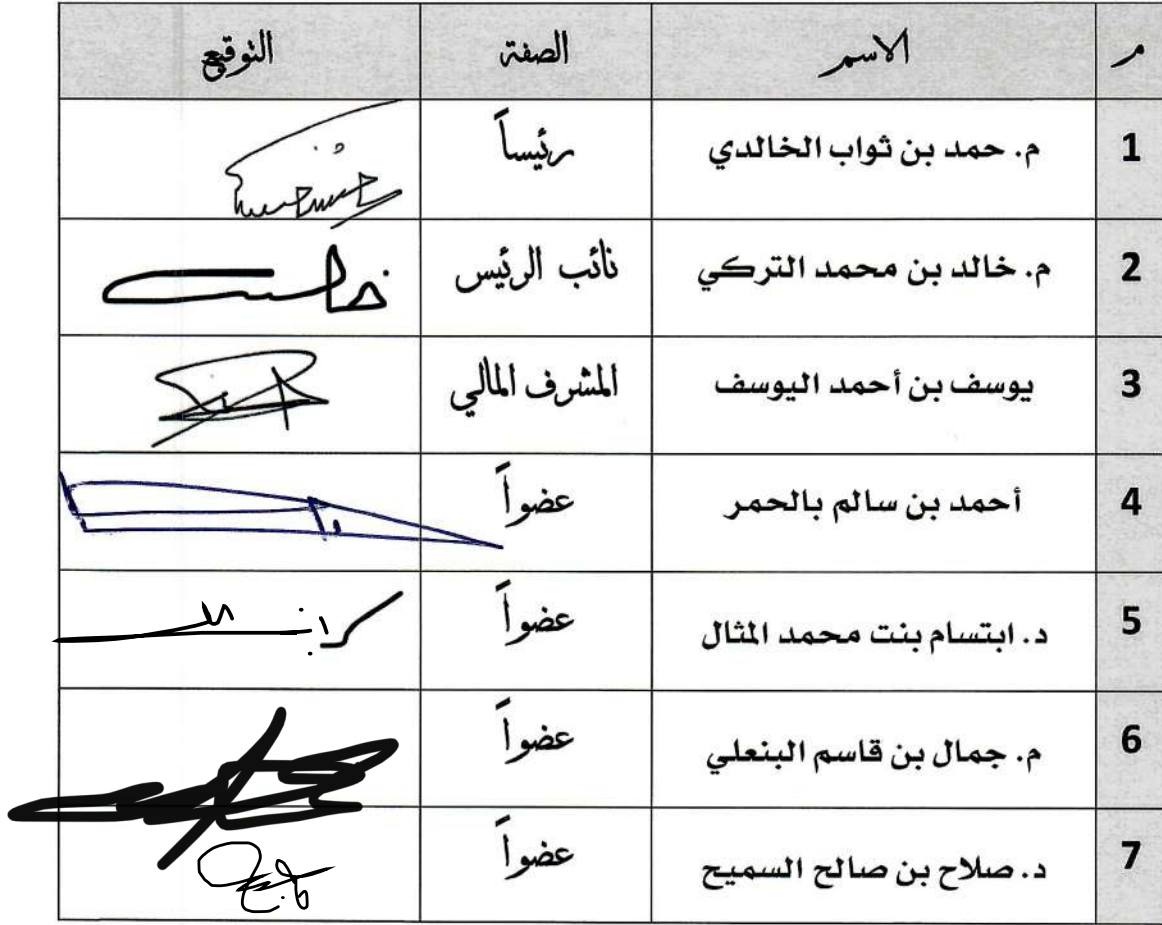 م الاسم الصفة التوقيع
1 م. حمد بن ثواب الخالدي رئيساً
2 م. خالد بن محمد التركي نائب الرئيس
3 يوسف بن أحمد اليوسف المشرف المالي
4 أحمد بن سالم بالحمر عضواً
5 د. ابتسام بنت محمد المثال عضواً
6 م. جمال بن قاسم البنعلي عضواً
7 د. صلاح بن صالح السميح عضواً